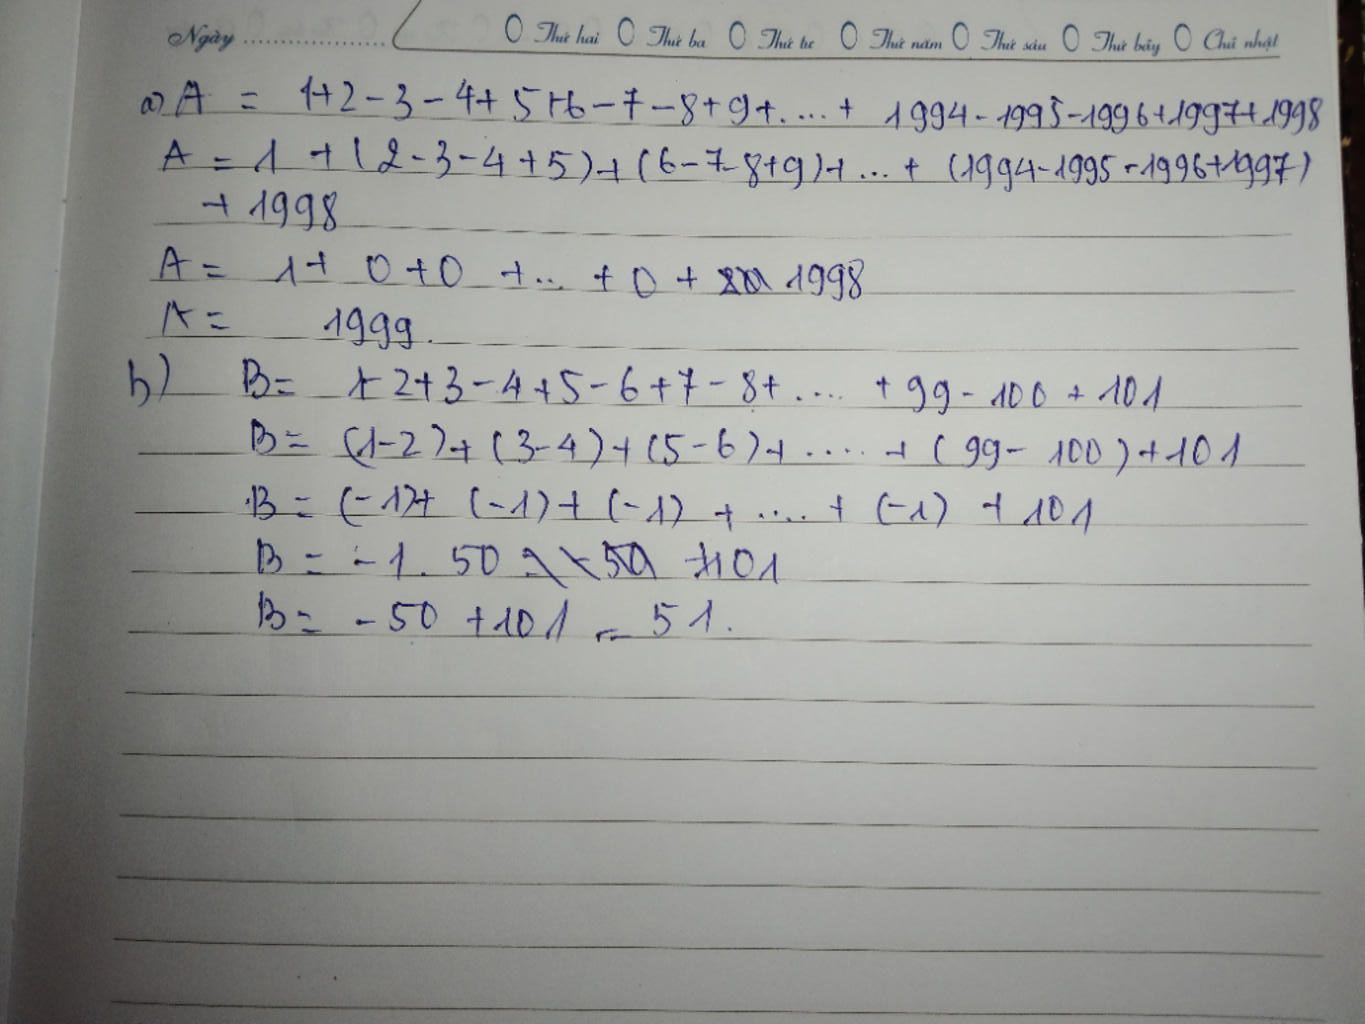 Ngày .................... Thứ hai Thứ ba Thứ tư Thứ năm Thứ sáu Thứ bảy Chủ nhật
a) A = 1+2-3-4+5+6-7-8+9+....+ 1994-1995-1996+1997+1998
A = 1 + (2-3-4+5)+(6-7-8+9)+...+ (1994-1995-1996+1997)
+ 1998
A = 1+ 0+0 +... + 0 + 1998
A = 1999.
b) B= 1-2+3-4+5-6+7-8+.... +99-100+101
B= (1-2)+(3-4)+(5-6)+....+(99-100)+101
B= (-1)+(-1)+(-1)+....+(-1)+101
B= -1.50 +101
B= -50+101=51.